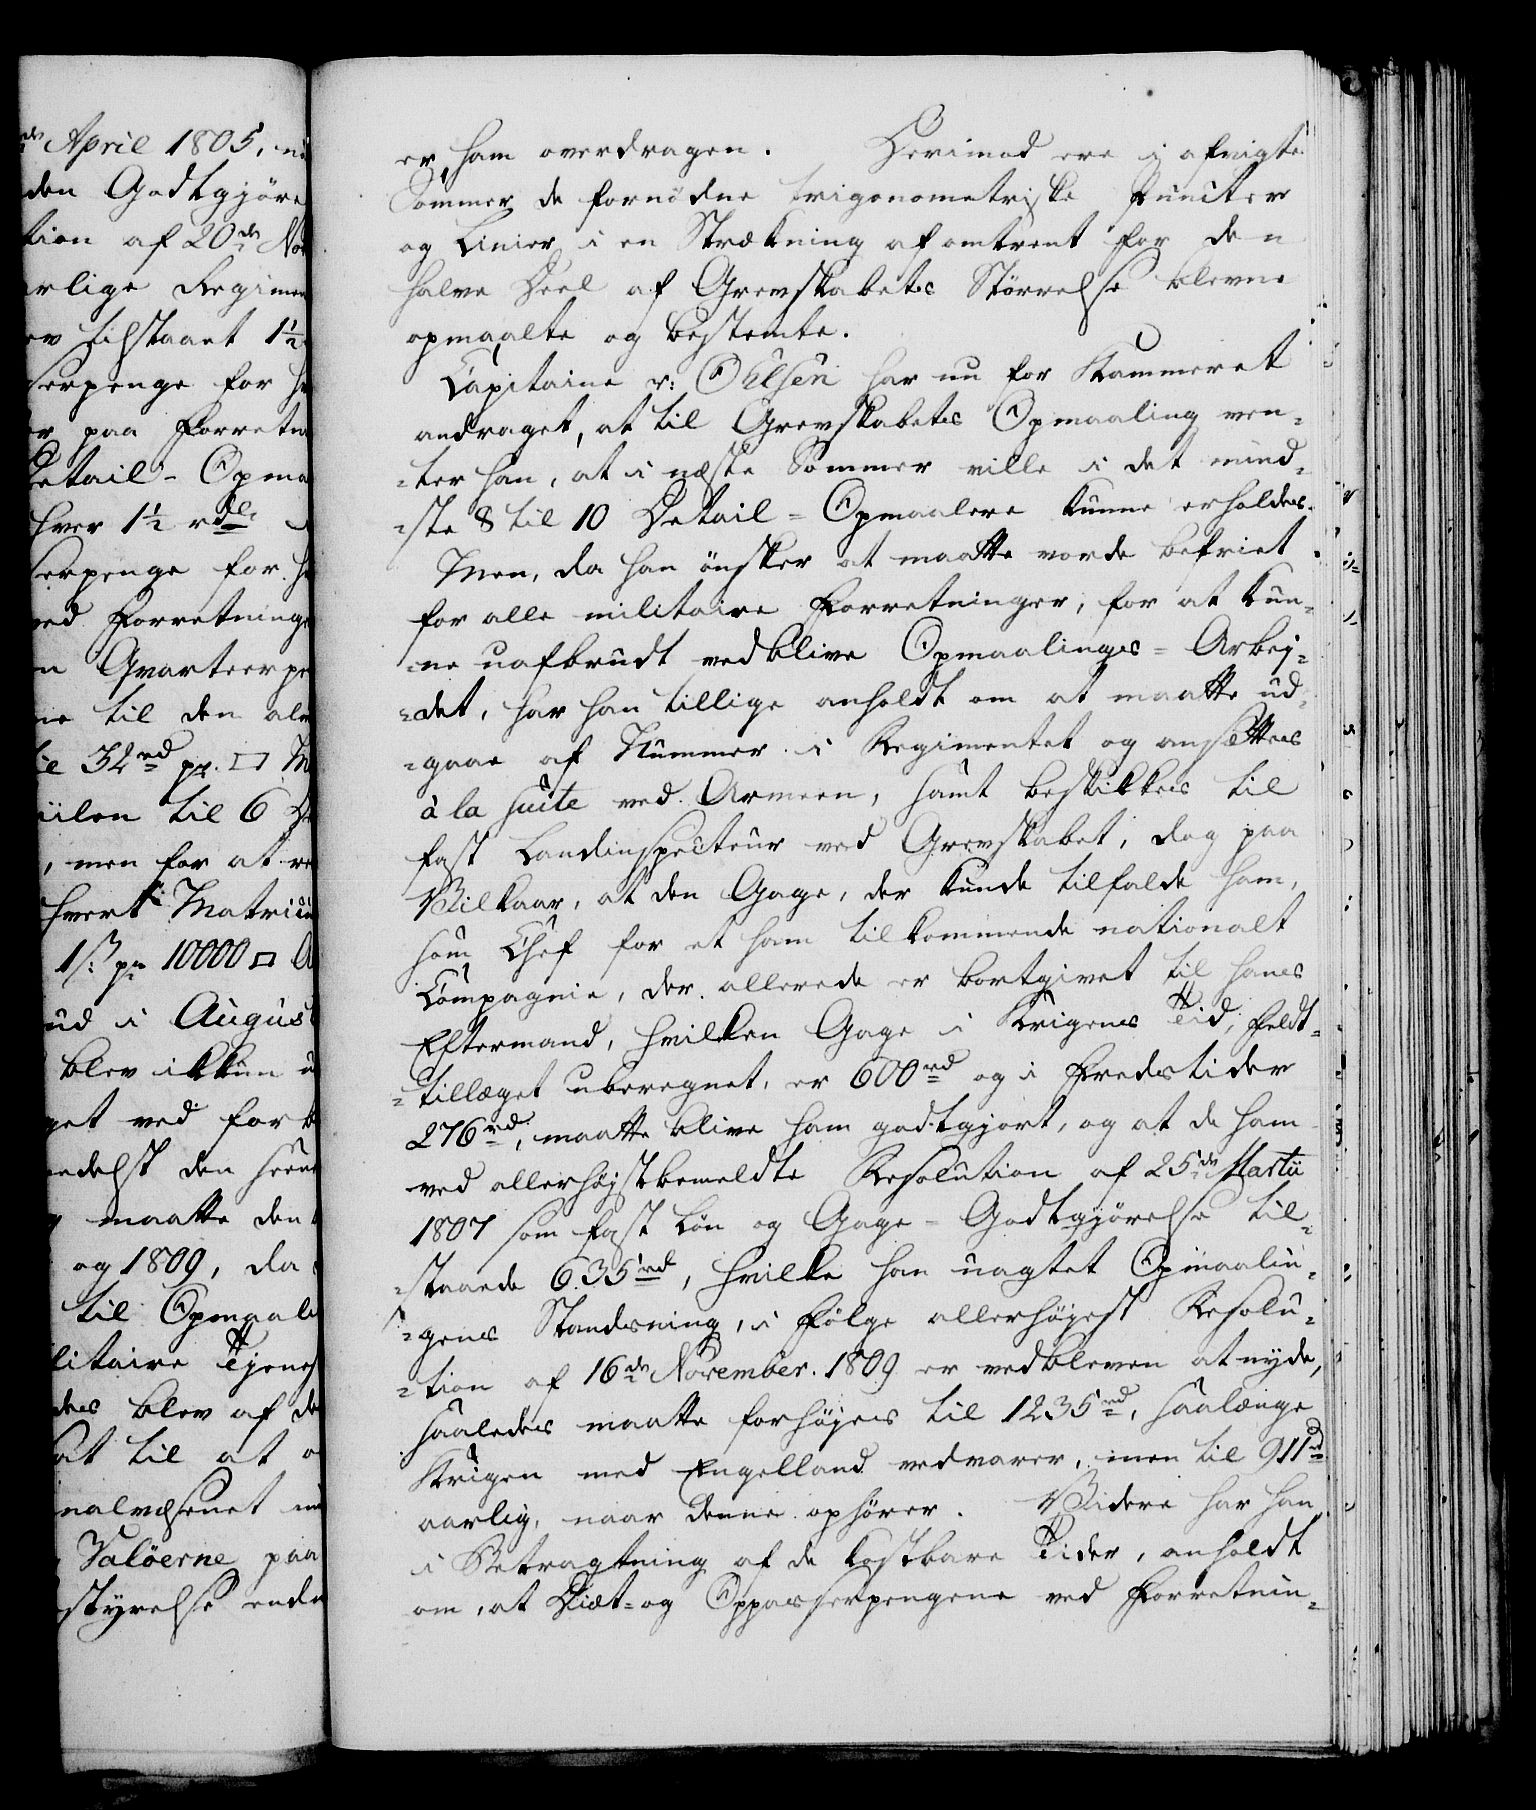 de April 1805, 
den Godtgjøre
tion af 20de Nov
rlige Regimen
ev tilstaaet 1½
serpenge for h
er paa Forretn
Detail-Opma
hver 1½ rdlr
serpenge for h
ved Forretninge
n Qvarteerpe
ne til den al
le 32rd pr. □ M
iilen til 6 
, men for at 
hvert Matricu
1 /: pr 10000 □ A
ud i August
blev ikkun u
get ved for
edelst den 
maatte den
og 1809, da
til Opmaali
litaire Tjenes
des blev af de
at til at 
nalvæsenet 
Saløerne paa
styrelse end
er, ham overdragen. Derimod ere i afvigte
Sommer de fornødne trigonometriske Puncter
og Linier i en Strækning af omtrent for den
halve Deel af Grevskabets Størrelse blevne
opmaalte og bestemte.
Capitaine v: Ohlsen har nu for Kammeret
andraget, at til Grevskabets Opmaaling ven-
-ter han, at i næste Sommer ville i det mind-
-ste 8 til 10 Detail-Opmaalere kunne erholdes.
Men, da han ønsker at maatte vorde befriet
for alle militaire Forretninger, for at kun-
-ne uafbrudt vedblive Opmaalings-Arbej-
-det, har han tillige anholdt om at maatte ud-
-gaae af Nummer i Regimentet og ansættes
à la suite ved Armeen, samt beskikkes til
fast Landinspecteur ved Grevskabet, dog paa
Vilkaar, at den Gage, der kunde tilfalde ham,
som Chef for et ham tilkommende nationalt
Compagnie, der allerede er bortgivet til hans
Eftermand, hvilken Gage i Krigens Tid, Feldt-
-tillæget uberegnet, er 600rd og i Fredstider
276rd, maatte blive ham godtgjort, og at de ham
ved allerhøjstbemeldte Resolution af 25de Martii
1807 som fast Løn og Gage-Godtgjørelse til-
-staaede 635rd, hvilke han uagtet Opmaalin-
-gens Standsning, i Følge allerhøjest Resolu-
-tion af 16de November 1809 er vedbleven at nyde,
saaledes maatte forhøjes til 1235rd, saalænge
Krigen med Engelland vedvarer, men til 911rd
aarlig, naar denne ophører. Videre har han
i Betragtning af de kostbare Tider, anholdt
om, at Diæt- og Oppasserpengene ved Forretnin-